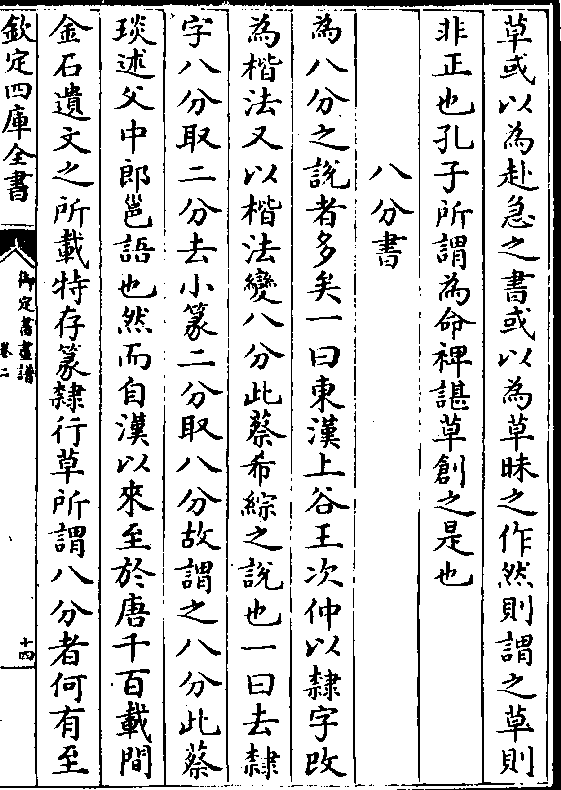 草或以為赴急之書或以為草昧之作然則謂之草則
非正也孔子所謂為命裨諶草創之是也
八分書
為八分之說者多矣一曰東漢上谷王次仲以隸字改
為楷法又以楷法變八分此蔡希綜之說也一曰去隸
字八分取二分去小篆二分取八分故謂之八分此蔡
琰述父中郎邕語也然而自漢以來至於唐千百載間
金石遺文之所載特存篆隸行草所謂八分者何有至
欽定四庫全書
御定書畫譜
卷二
十四